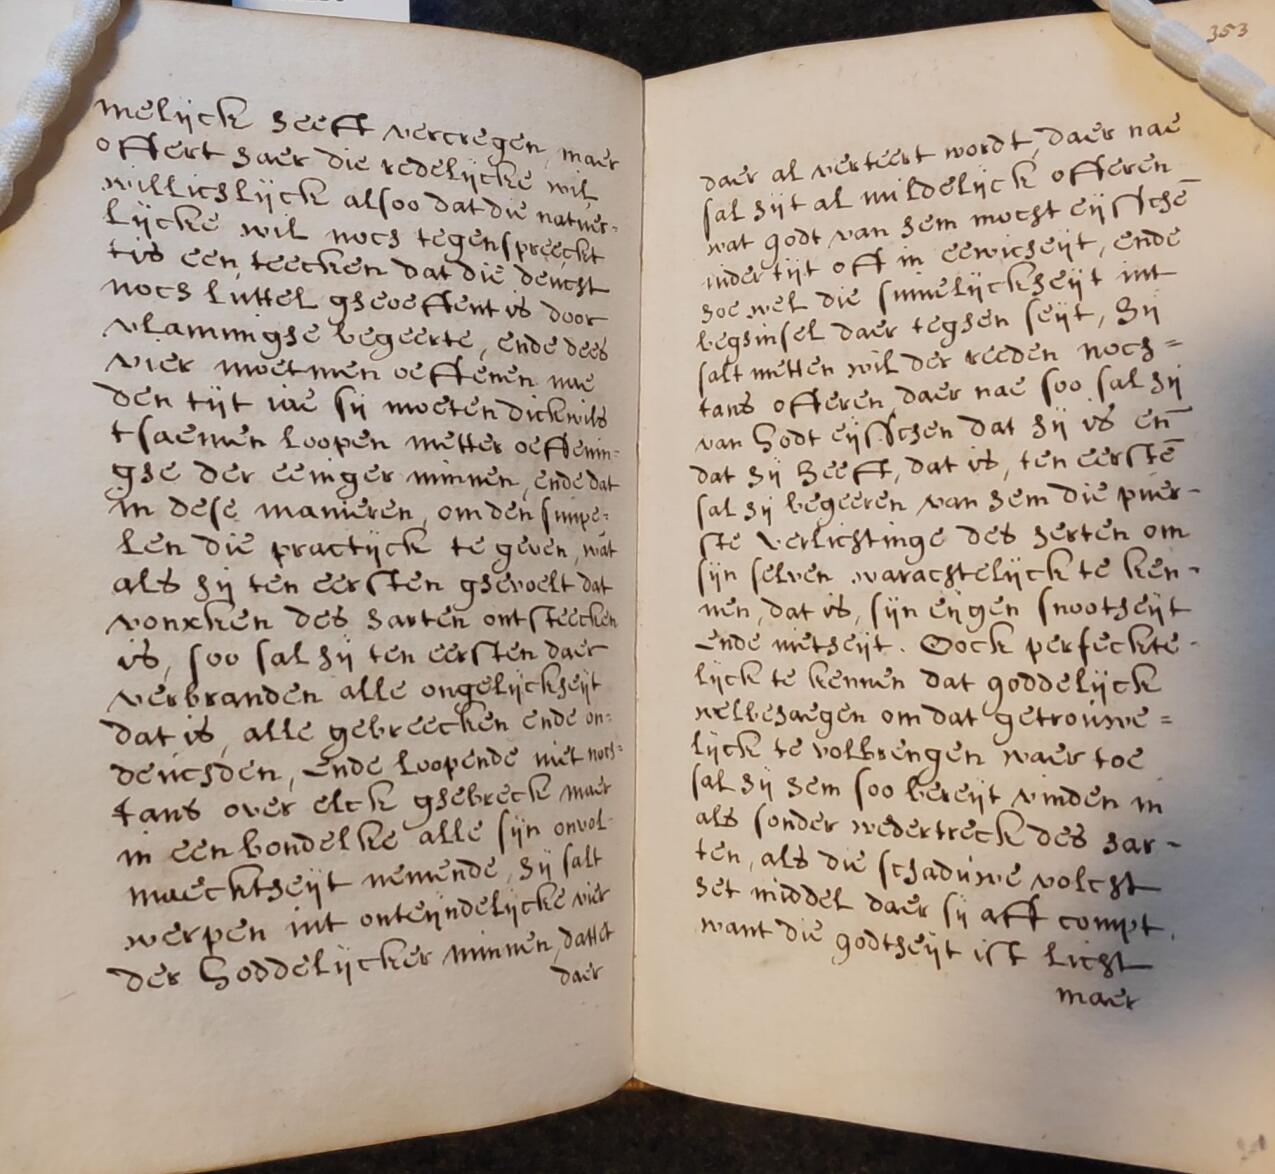 melijck heeft vercregen, maer
offert haer die redelijcke wil
willichlijck alsoo dat die natuer=
lijcke wil noch tegenspreeckt
tis een teecken dat die deucht
noch luttel gheoeffent is door
vlammighe begeerte, ende dees
vier moetmen oeffenen nae
den tijt iae sij moeten dickwils
tsaemen loopen metter oeffenin=
ghe der eeniger minnen, ende dat
in dese manieren, om den simpe=
len die practijck te geven, wat
als hij ten eersten ghevoelt dat
vonxken des harten ontsteecken
is, soo sal hij ten eersten daer
verbranden alle ongelijckheijt
dat is, alle gebreecken ende on=
deuchden, ende loopende niet noch=
tans over elck ghebreck maer
in een bondelke alle sijn onvol-
maecktheijt nemende, hij salt
werpen int onteijndelijcke vier
der Goddelijcker minnen, dattet
daer
353
daer al verteert wordt, daer nae
sal hijt al mildelijck offeren
wat godt van hem mocht eijsschē
inder tijt off in eewicheijt, ende
hoe wel die sinnelijckheijt int
beghinsel daer teghen seijt, hij
salt metten wil der reeden noch=
tans offeren daer nae soo sal hij
van Godt eijsschen dat hij is en̄
dat hij heeft, dat is, ten eerstē
sal hij begeeren van hem die puer-
ste verlichtinge des herten om
sijn selven warachtelijck te ken-
nen, dat is, sijn eijgen snootheijt
ende nietheijt. Oock perfeckte-
lijck te kennen dat goddelijck
welbehaegen om dat getrouwe=
lijck te volbrengen waer toe
sal hij hem soo bereijt vinden in
als sonder wedertreck des har-
ten, als die schaduwe volcht
het middel daer sij aff compt,
want die godtheijt ist licht
maer